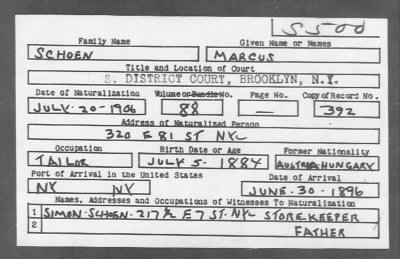 S500
Family Name Given Name or Names
SCHOEN MARCUS
Title and Location of Court
S. DISTRICT COURT, BROOKLYN, N.Y.
Date of Naturalization Volume or Bundle No. Page No. Copy of Record No.
JULY-20-1906 88 — 392
Address of Naturalized Person
320 E 81 ST NYC
Occupation Birth Date or Age Former Nationality
TAILOR JULY 5. 1884 AUSTRIA HUNGARY
Port of Arrival in the United States Date of Arrival
NY NY JUNE-30-1896
Names, Addresses and Occupations of Witnesses To Naturalization
1 SIMON-SCHOEN-217½ E 7 ST-NYC STOREKEEPER
2 FATHER